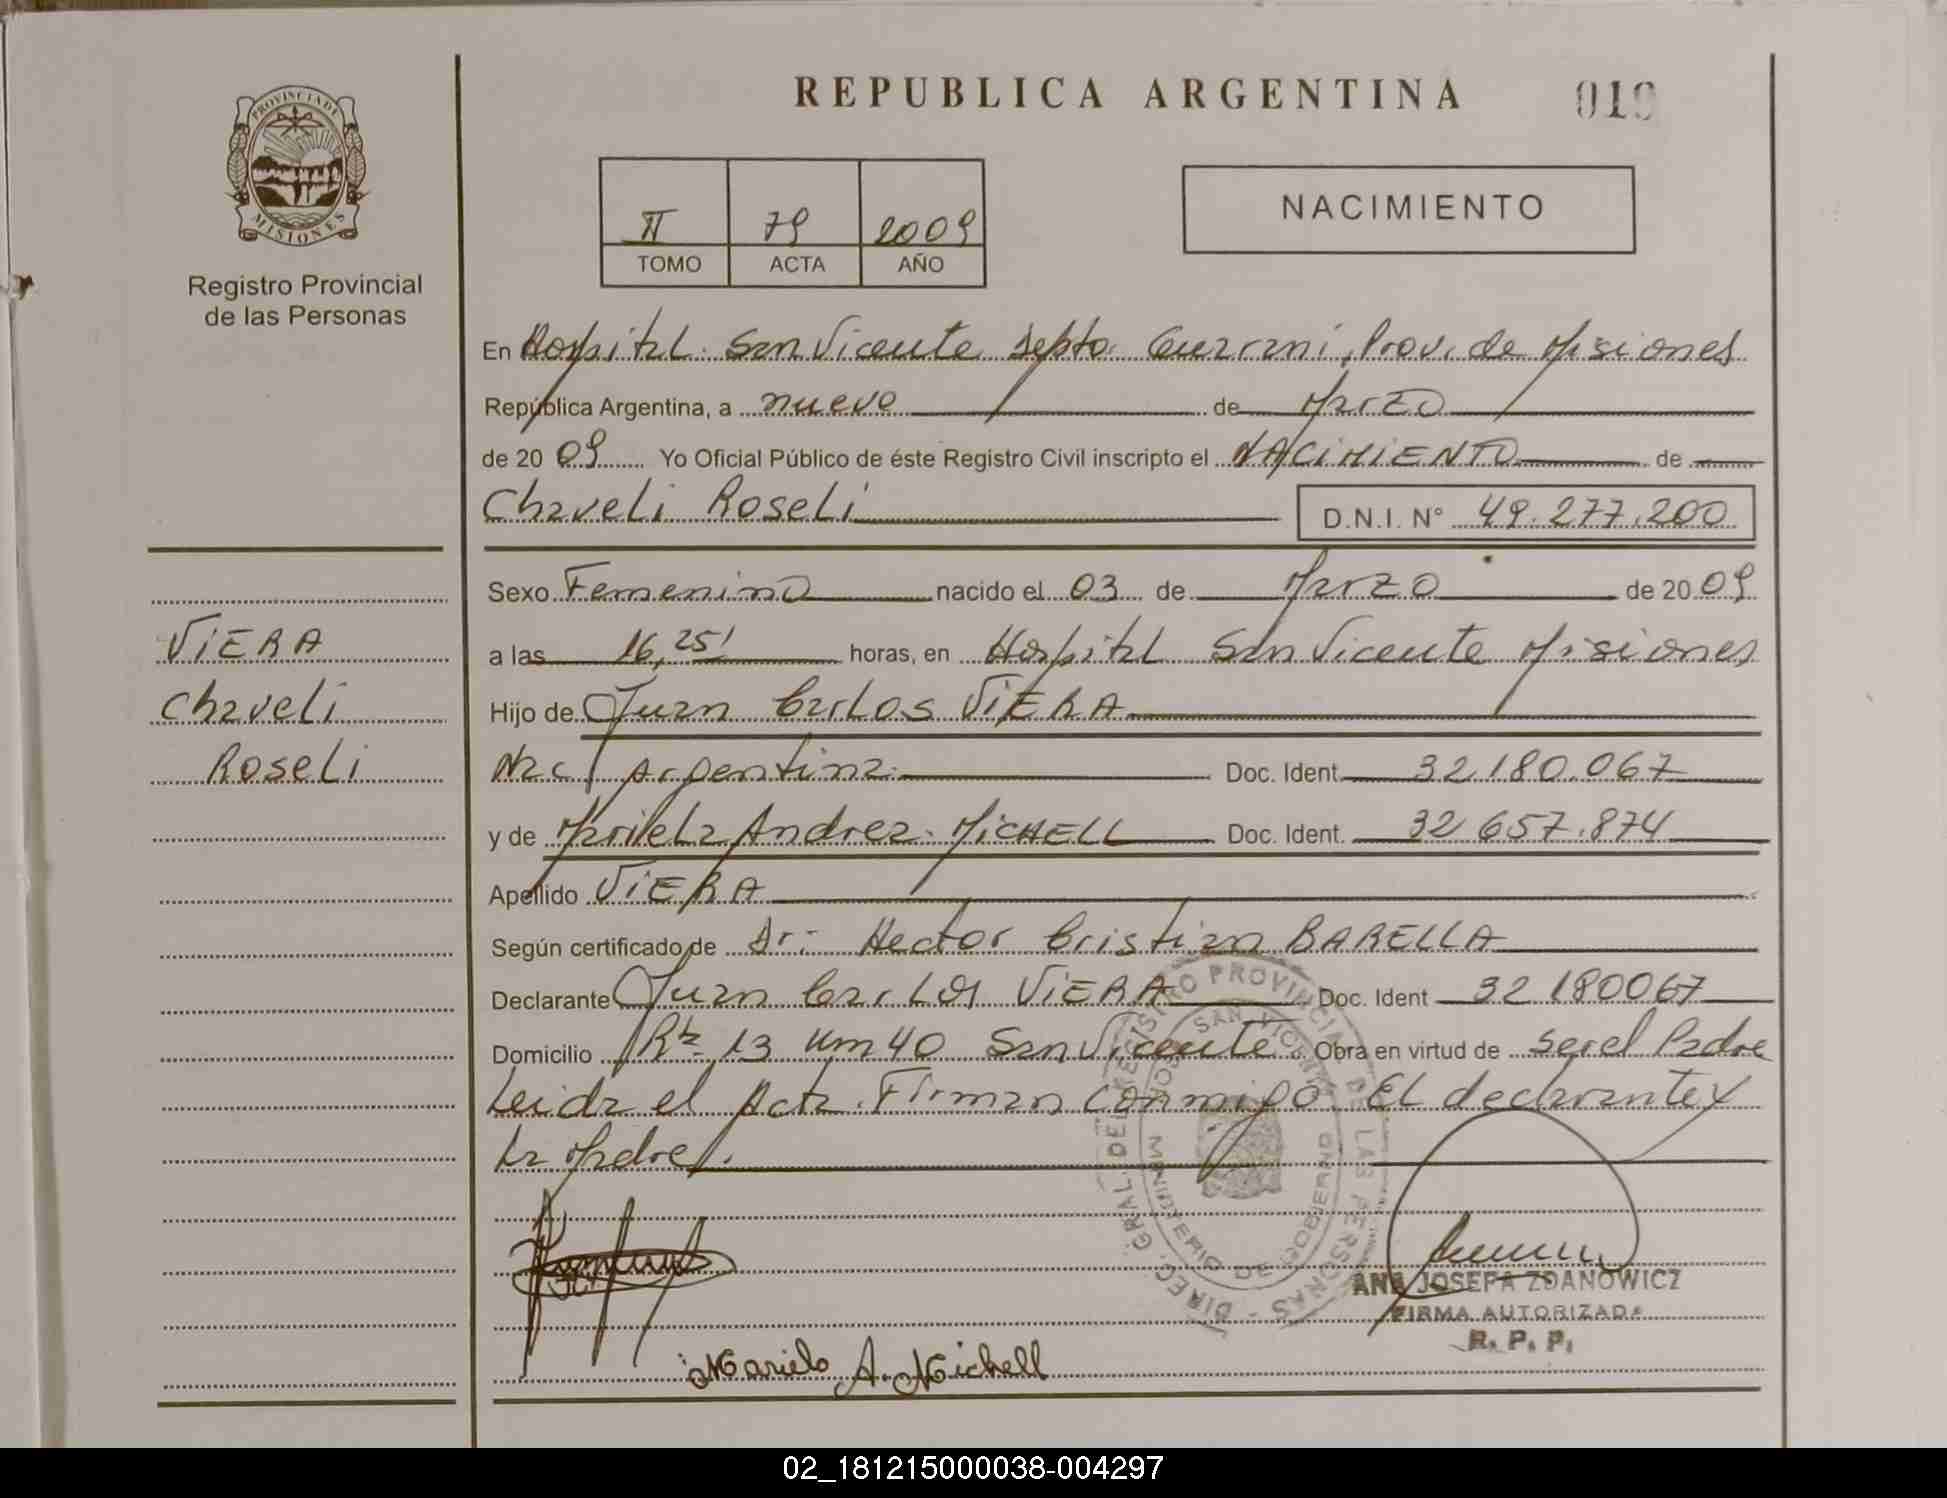 REPUBLICA ARGENTINA 019
PROVINCIA DE
MISIONES
Registro Provincial
de las Personas
II 79 2009
TOMO ACTA AÑO
NACIMIENTO
En Hospital San Vicente Depto Guarani, Prov. de Misiones
República Argentina, a nueve de Marzo
de 2009 Yo Oficial Público de éste Registro Civil inscripto el NACIMIENTO de
Chaveli Roseli D.N.I. N° 49.277.200
Sexo Femenino nacido el 03 de Marzo de 2009
VIERA
a las 16,25' horas, en Hospital San Vicente Misiones
Chaveli
Hijo de Juan Carlos VIERA
Roseli
Nac/ Argentina Doc. Ident. 32.180.067
y de Mariela Andrea MICHELL Doc. Ident. 32.657.874
Apellido VIERA
Según certificado de Dr: Hector Cristian BARELLA
Declarante Juan Carlos VIERA Doc. Ident 32180067
Domicilio Rta 13 Km 40 San Vicente Obra en virtud de ser el Padre
Leida el Acta Firman conmigo El declarante y
La Madre.
DIREC. GRAL. DEL REGISTRO PROVINCIAL DE LAS PERSONAS
MINISTERIO DE GOBIERNO
ANA JOSEFA ZDANOWICZ
FIRMA AUTORIZADA
R. P. P.
Mariela A. Michell
02_181215000038-004297